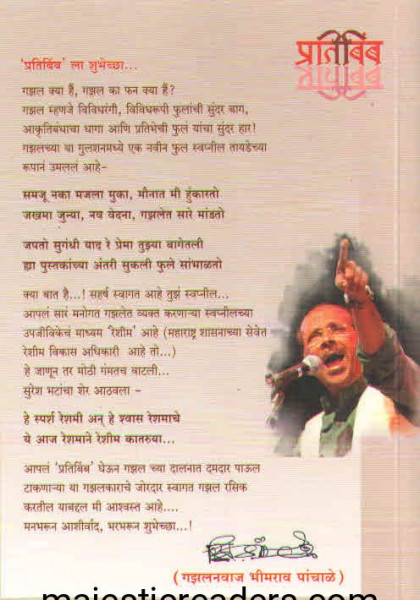 प्रतिबिंब
'प्रतिबिंब' ला शुभेच्छा...
गझल क्या हैं, गझल का फन क्या हैं?
गझल म्हणजे विविधरंगी, विविधरूपी फुलांची सुंदर बाग,
आकृतिबंधाचा धागा आणि प्रतिभेची फुलं यांचा सुंदर हार!
गझलच्या या गुलशनमध्ये एक नवीन फुल स्वप्नील तायडेच्या
रूपानं उमललं आहे-
समजू नका मजला मुका, मौनात मी हुंकारतो
जखमा जुन्या, नव वेदना, गझलेत सारे मांडतो
जपतो सुगंधी याद रे प्रेमा तुझ्या बागेतली
ह्या पुस्तकांच्या अंतरी सुकली फुले सांभाळतो
क्या बात है...! सहर्ष स्वागत आहे तुझं स्वप्नील...
आपलं सारं मनोगत गझलेत व्यक्त करणाऱ्या स्वप्नीलच्या
उपजीविकेचं माध्यम 'रेशीम' आहे (महाराष्ट्र शासनाच्या सेवेत
रेशीम विकास अधिकारी आहे तो...)
हे जाणून तर मोठी गंमतच वाटली...
सुरेश भटांचा शेर आठवला -
हे स्पर्श रेशमी अन् हे श्वास रेशमाचे
ये आज रेशमाने रेशीम कातरुया...
आपलं 'प्रतिबिंब' घेऊन गझल च्या दालनात दमदार पाऊल
टाकणाऱ्या या गझलकाराचे जोरदार स्वागत गझल रसिक
करतील याबद्दल मी आश्वस्त आहे....
मनभरून आशीर्वाद, भरभरून शुभेच्छा...!
(गझलनवाज भीमराव पांचाळे)
majesticreaders.com